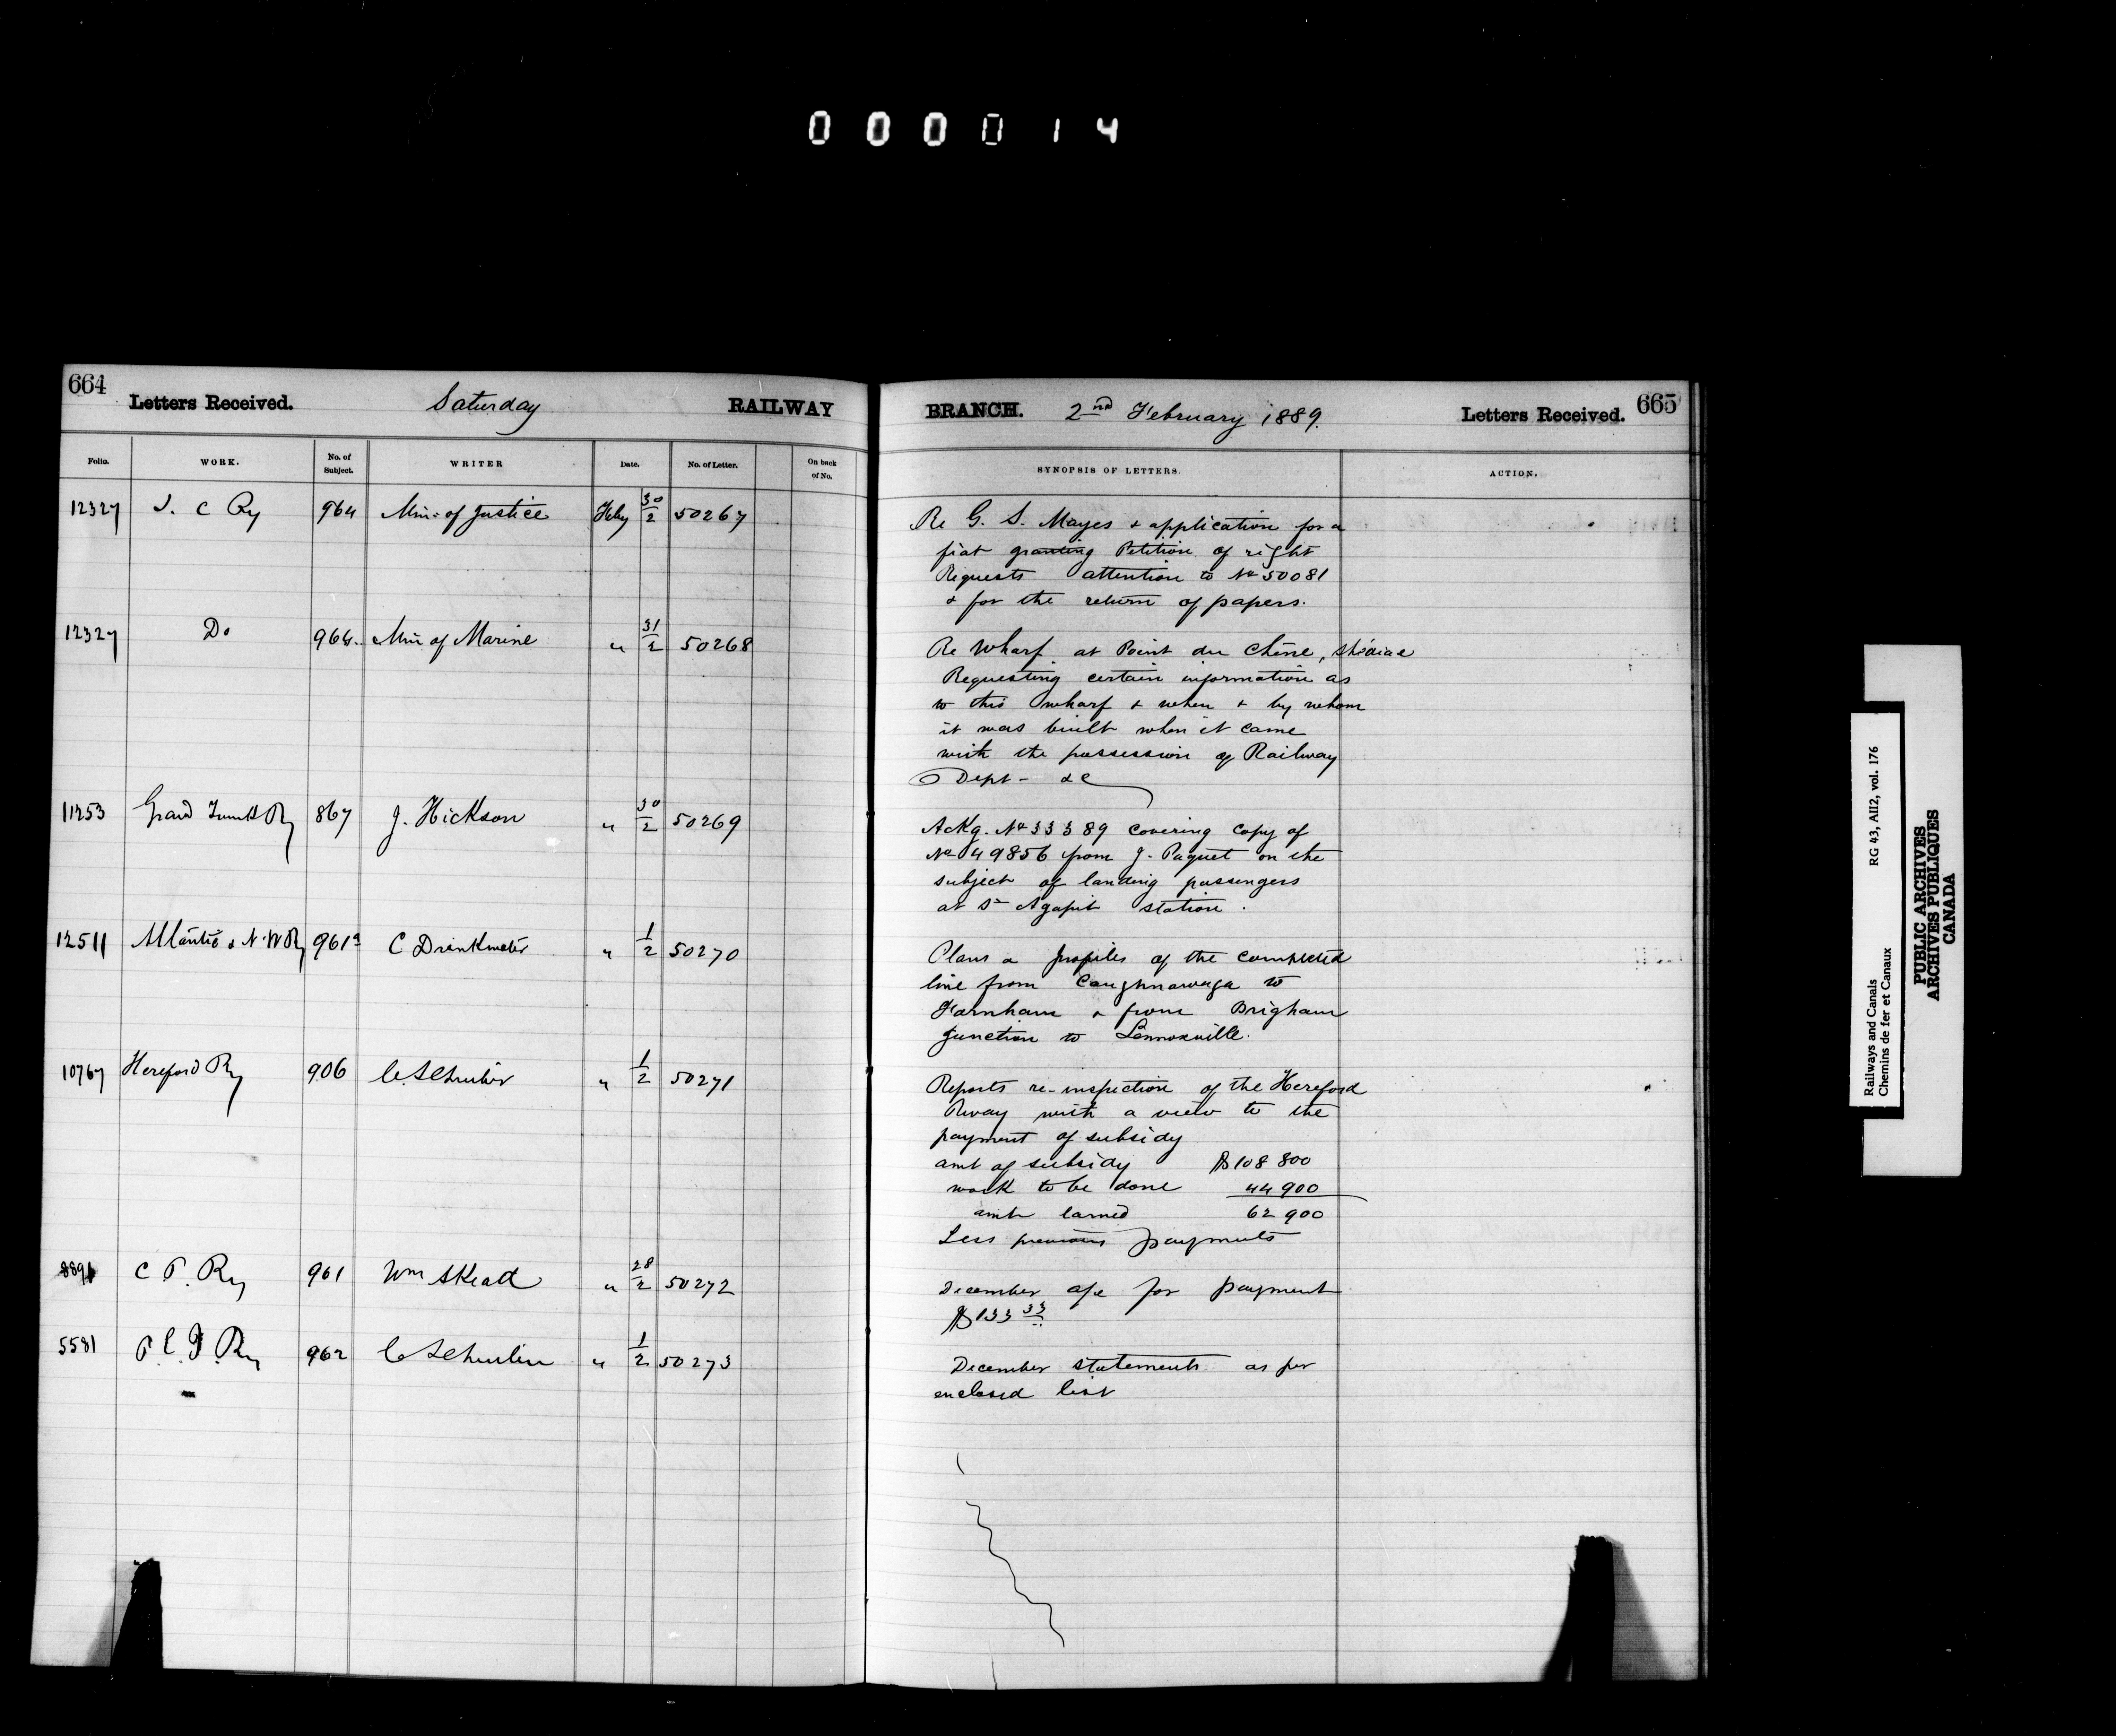 000014
664
Letters Received. Saturday RAILWAY
Folio. WORK. No. of Subject. WRITER Date. No. of Letter. On back of No.
12327 I. C Ry 964 Min. of Justice Feby 30/2 50267
12327 Do 964. Min of Marine " 31/2 50268
11253 Grand Trunk Ry 867 J. Hickson " 30/2 50269
12511 Atlantic & N. W Ry 961a C Drinkwater " 1/2 50270
10767 Hereford Ry 906 C. Schreiber " 1/2 50271
8891 C P. Ry 961 Wm Skead " 28/2 50272
5581 P. E. I. Ry 962 C Schreiber " 1/2 50273
BRANCH. 2nd February 1889. Letters Received. 665
SYNOPSIS OF LETTERS. ACTION.
Re G. S. Mayes & application for a
fiat granting Petition of right
Requests attention to No 50081
& for the return of papers.
Re Wharf at Point du Chêne, Shediac
Requesting certain information as
to this wharf & when & by whom
it was built when it came
with the possession of Railway
Dept - &c
Ackg. No 33389 covering copy of
No 49856 from J. Paquet on the
subject of landing passengers
at St Agapit station.
Plans & profiles of the completed
line from Caughnawaga to
Farnham & from Brigham
Junction to Lennoxville.
Reports re-inspection of the Hereford
Rway with a view to the
payment of subsidy
amt of subsidy $108 800
work to be done 44 900
amt earned 62 900
Less previous payments
December a/c for payment
$133 33
December statements as per
enclosed list
Railways and Canals RG 43, AII2, vol. 176
Chemins de fer et Canaux
PUBLIC ARCHIVES
ARCHIVES PUBLIQUES
CANADA